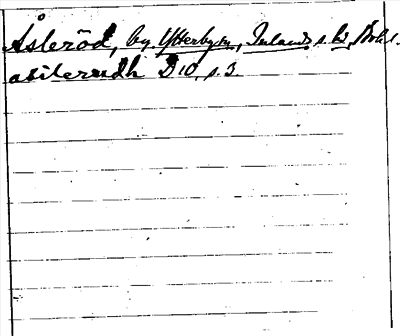 Åsleröd, by, Ytterby sn, Inlands s. hd, Boh l.
asilerudh D 10, s. 3.